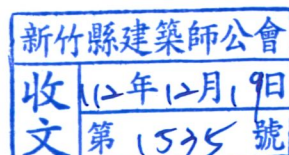 新竹縣建築師公會
收文
112年12月19日
第1535號